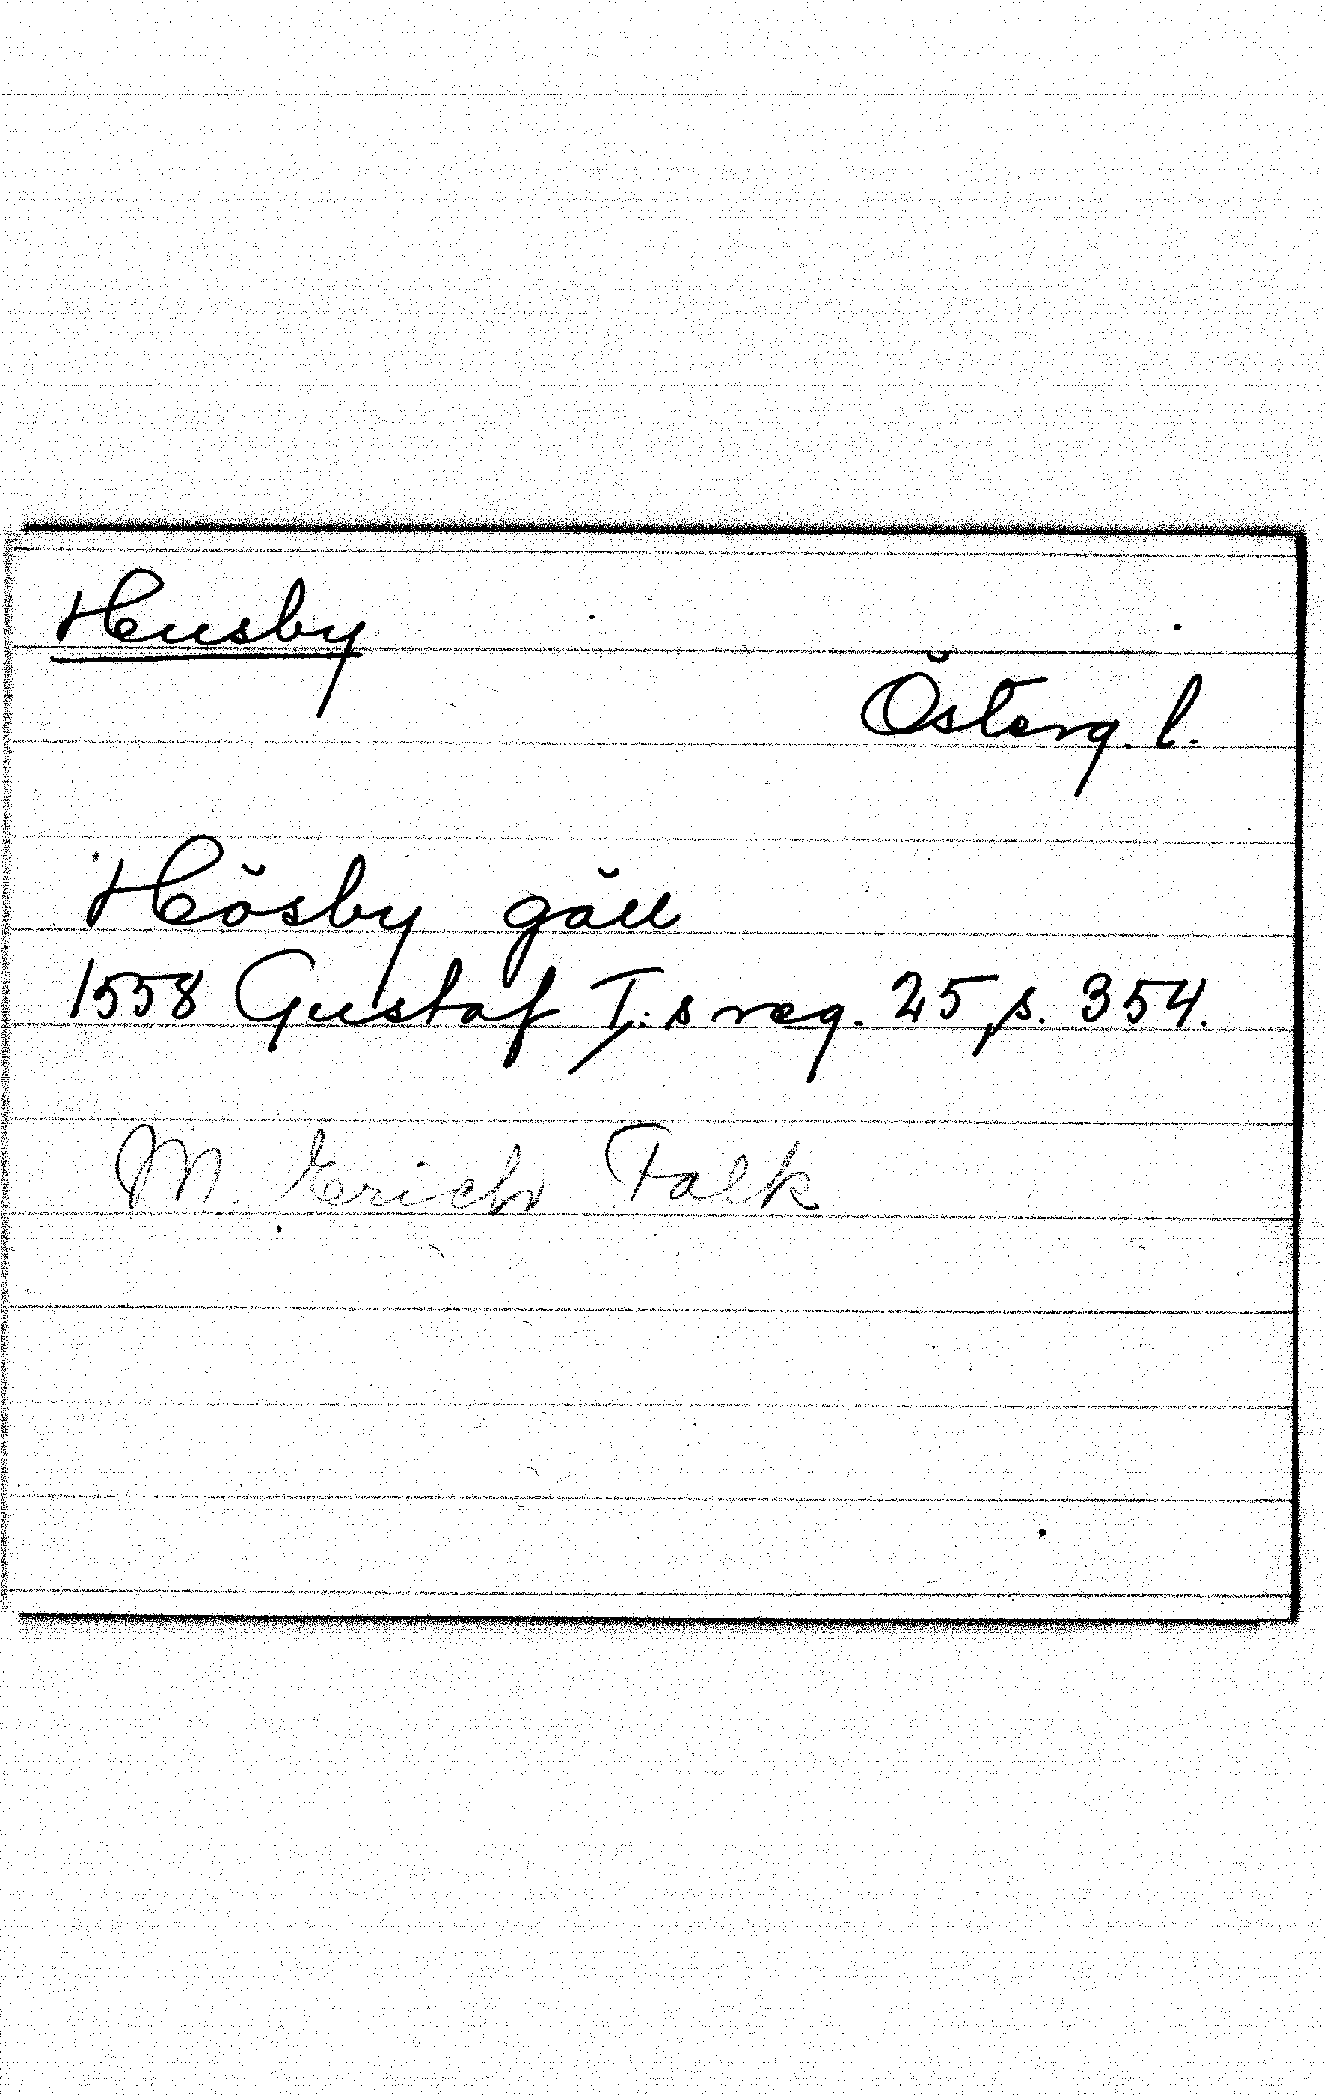 Husby
Österg. l.
Hösby gäll
1558 Gustaf I:s reg. 25, s. 354.
M. Erich Falk